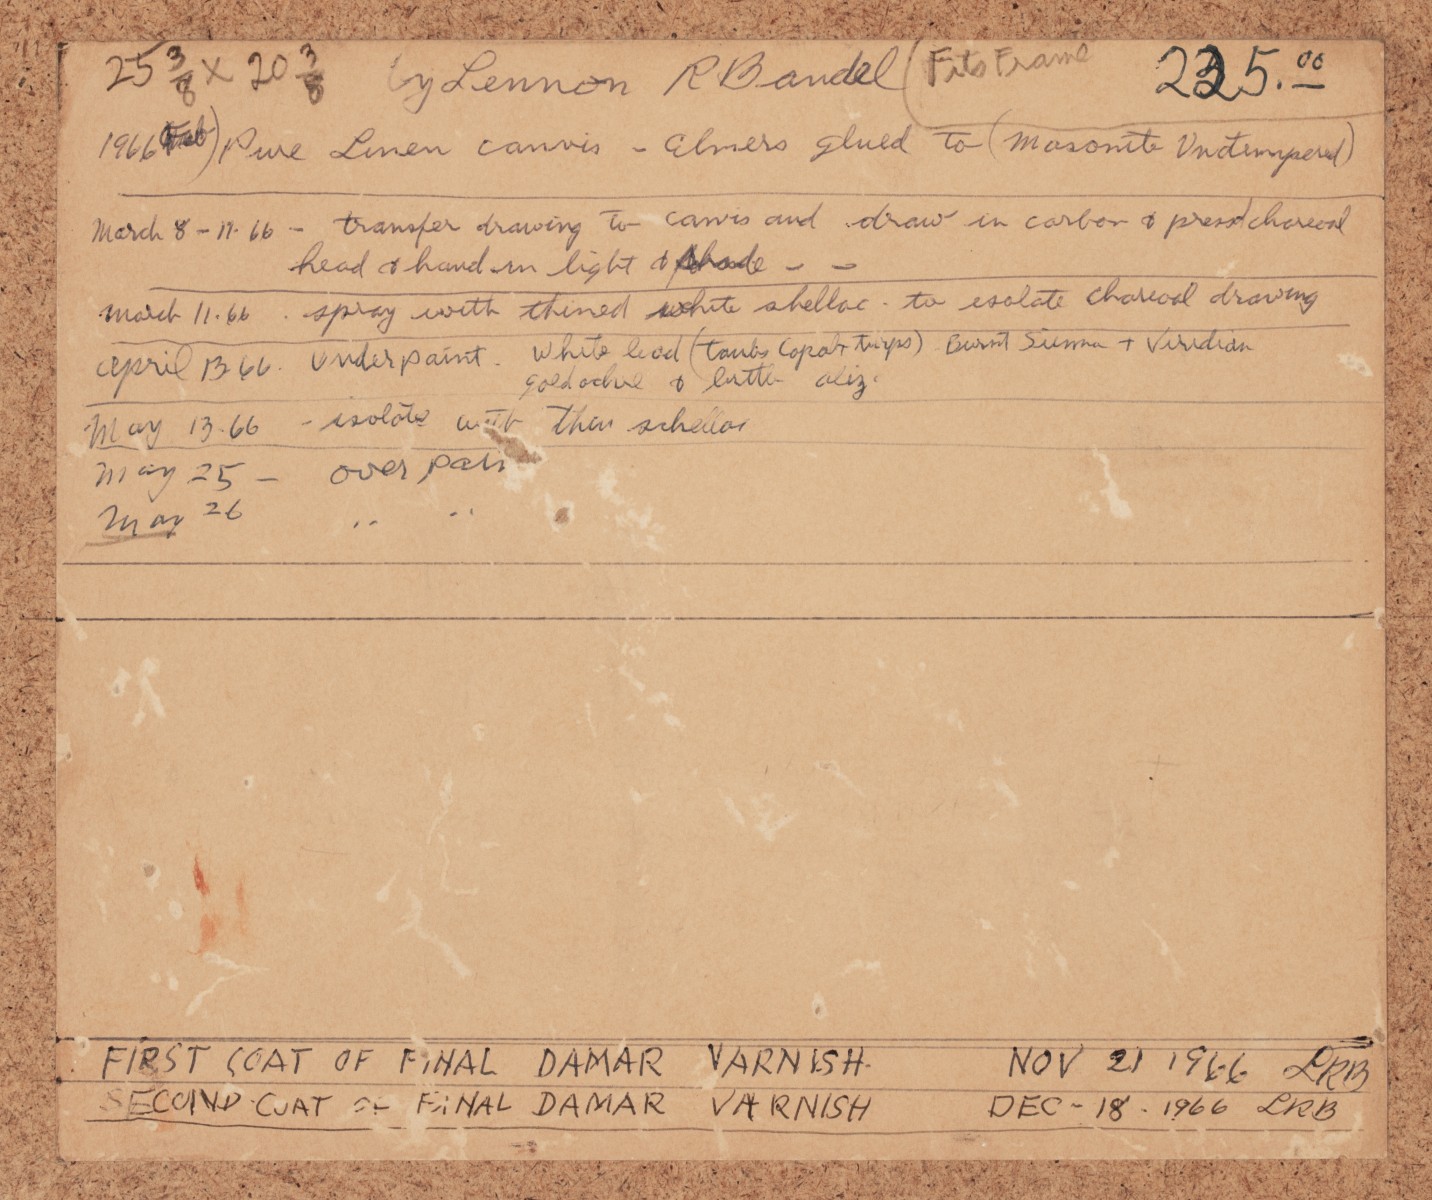 25 3/8 x 20 3/8 by Lennon R Bandel (Fits Frame 225.00
1966 Feb) Pure Linen canvis - Elmers glued to (Masonite Untempered)
March 8-11-66 - transfer drawing to canvis and draw in carbon & press charcoal
head & hand in light & shade - -
March 11.66 . spray with thined white shellac . to isolate charcoal drawing
April 13 66. Underpaint. White lead ( Copal turps) Burnt Sienna + Viridian
gold ochre & little aliz.
May 13.66 - isolate with thin schellac
May 25 - over pain
May 26 " "
FIRST COAT OF FINAL DAMAR VARNISH. NOV 21 1966 LRB
SECOND COAT OF FINAL DAMAR VARNISH DEC - 18 - 1966 LRB